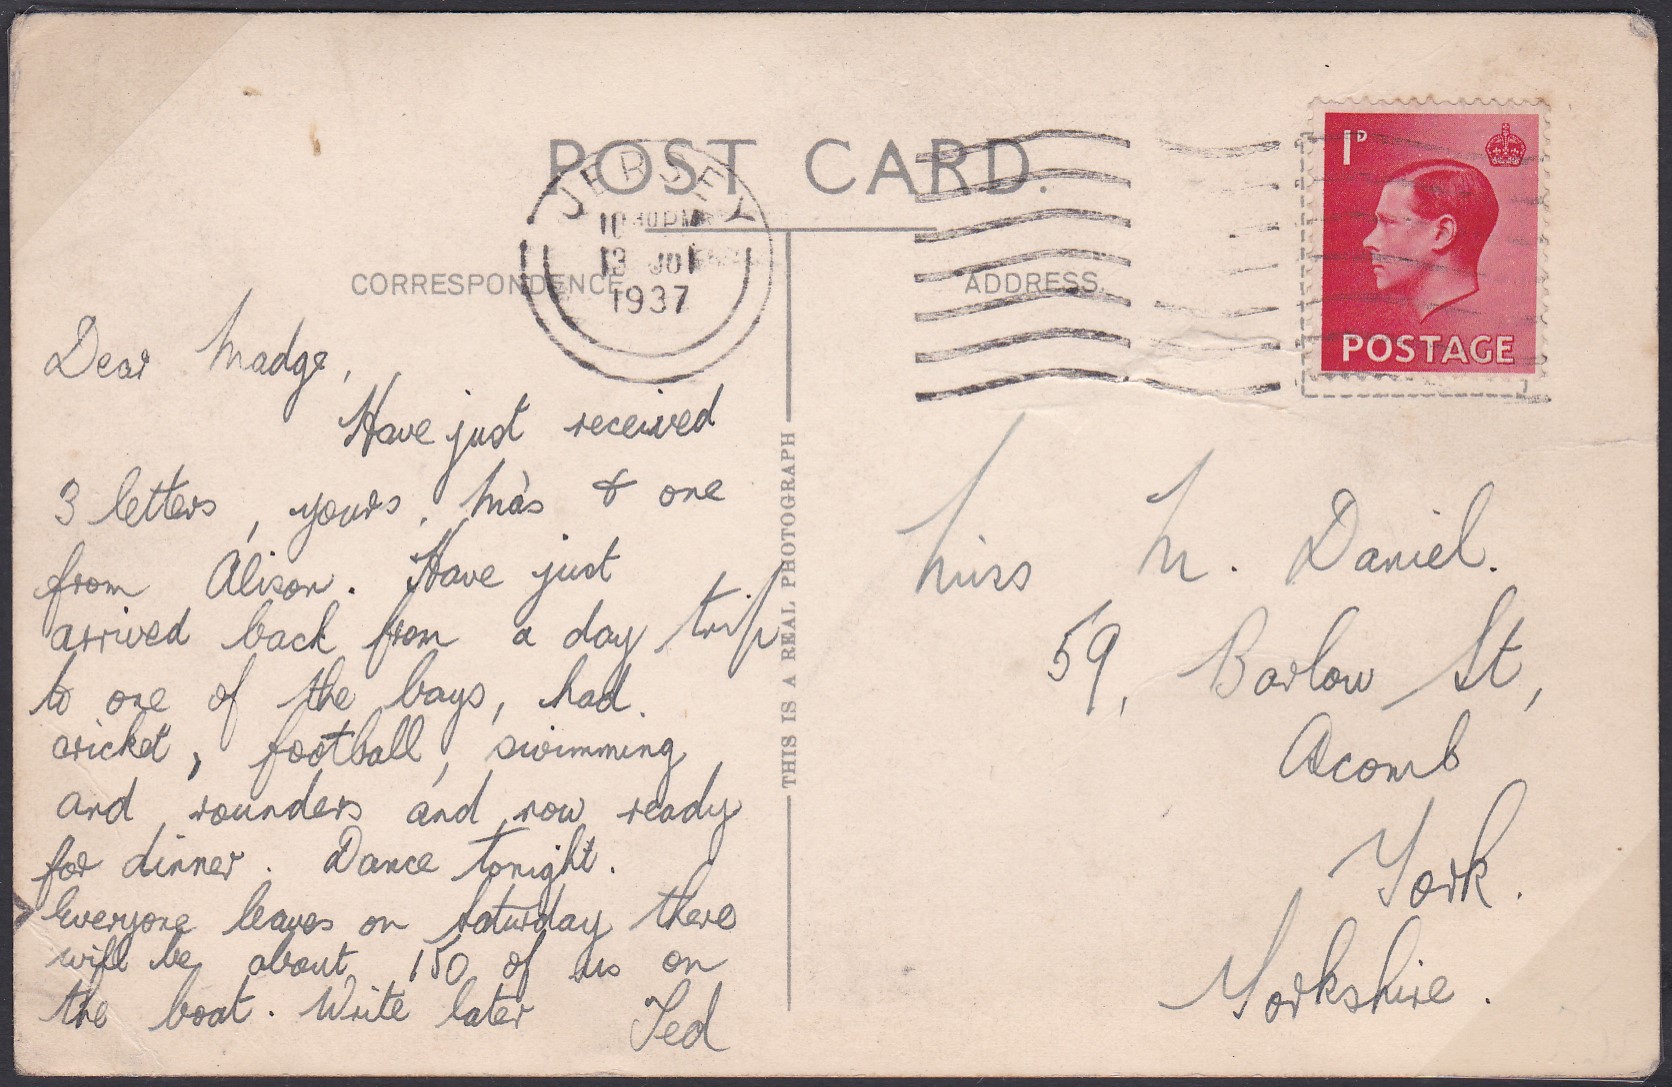 POST CARD.
JERSEY
1937
CORRESPONDENCE
ADDRESS.
1D
POSTAGE
THIS IS A REAL PHOTOGRAPH
Dear Madge,
Have just received
3 letters, yours, Ma's & one
from Alison. Have just
arrived back from a day trip
to one of the bays, had
cricket, football, swimming
and rounders and now ready
for dinner. Dance tonight.
Everyone leaves on saturday there
will be about 150 of us on
the boat. Write later
Ted
Miss M. Daniel.
59, Barlow St,
Acomb
York.
Yorkshire.